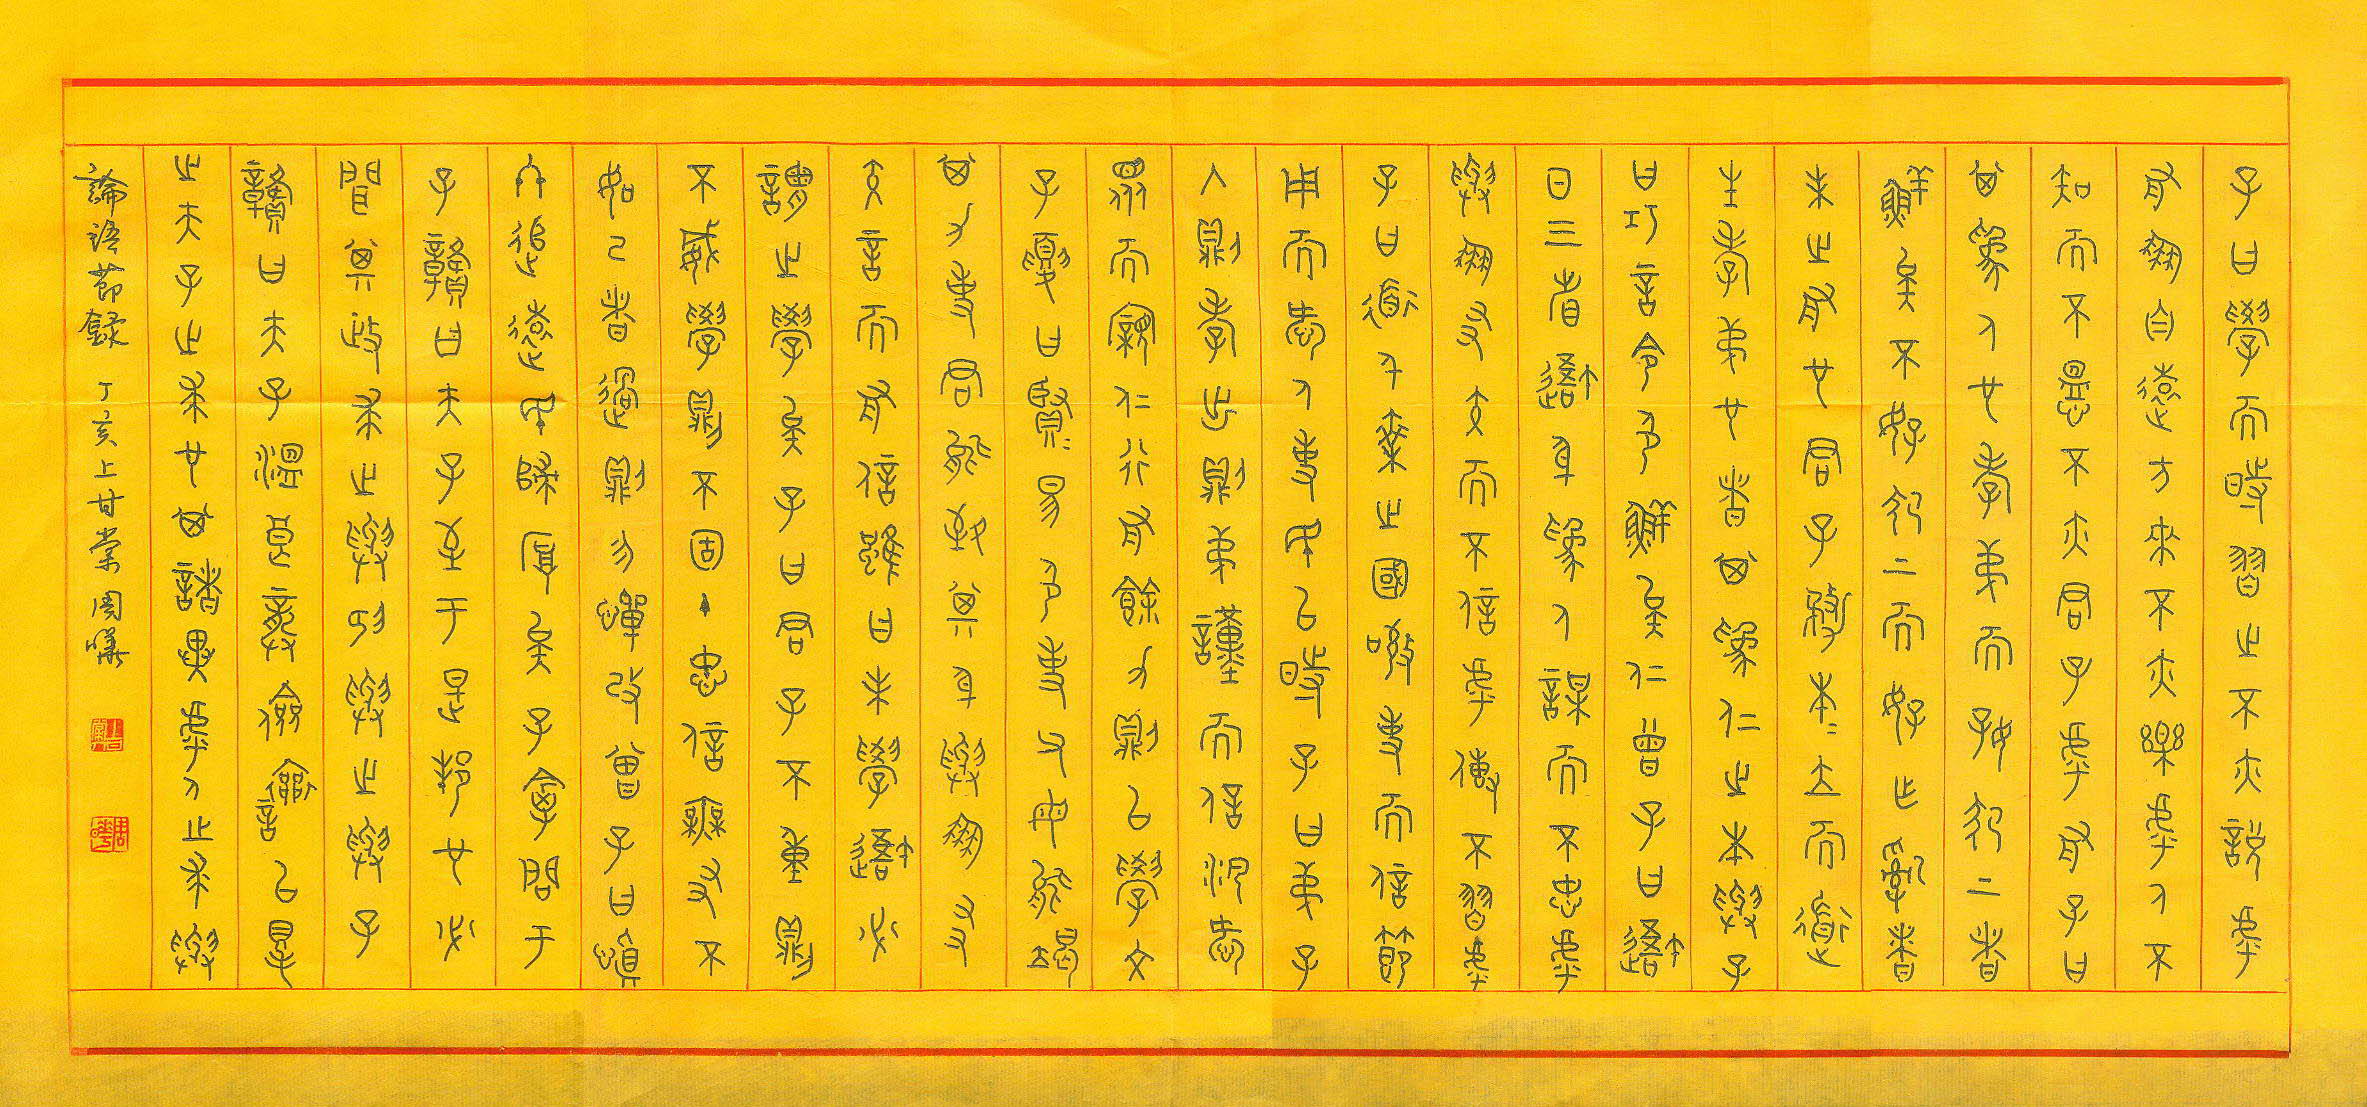 子曰學而時習之不亦說乎
有朋自遠方來不亦樂乎人不
知而不慍不亦君子乎有子曰
其為人也孝弟而好犯上者
鮮矣不好犯上而好作亂者
未之有也君子務本本立而道
生孝弟也者其為仁之本與子
曰巧言令色鮮矣仁曾子曰吾
日三省吾身為人謀而不忠乎
與朋友交而不信乎傳不習乎
子曰道千乘之國敬事而信節
用而愛人使民以時子曰弟子
入則孝出則弟謹而信汎愛
眾而親仁行有餘力則以學文
子夏曰賢賢易色事父母能竭
其力事君能致其身與朋友
交言而有信雖曰未學吾必
謂之學矣子曰君子不重則
不威學則不固主忠信無友不
如己者過則勿憚改曾子曰慎
終追遠民歸厚矣子禽問于
子貢曰夫子至于是邦也必
聞其政求之與抑與之與子
貢曰夫子溫良恭儉讓以得
之夫子之求也其諸異乎人之求與
論語節錄 丁亥上甘棠周曄